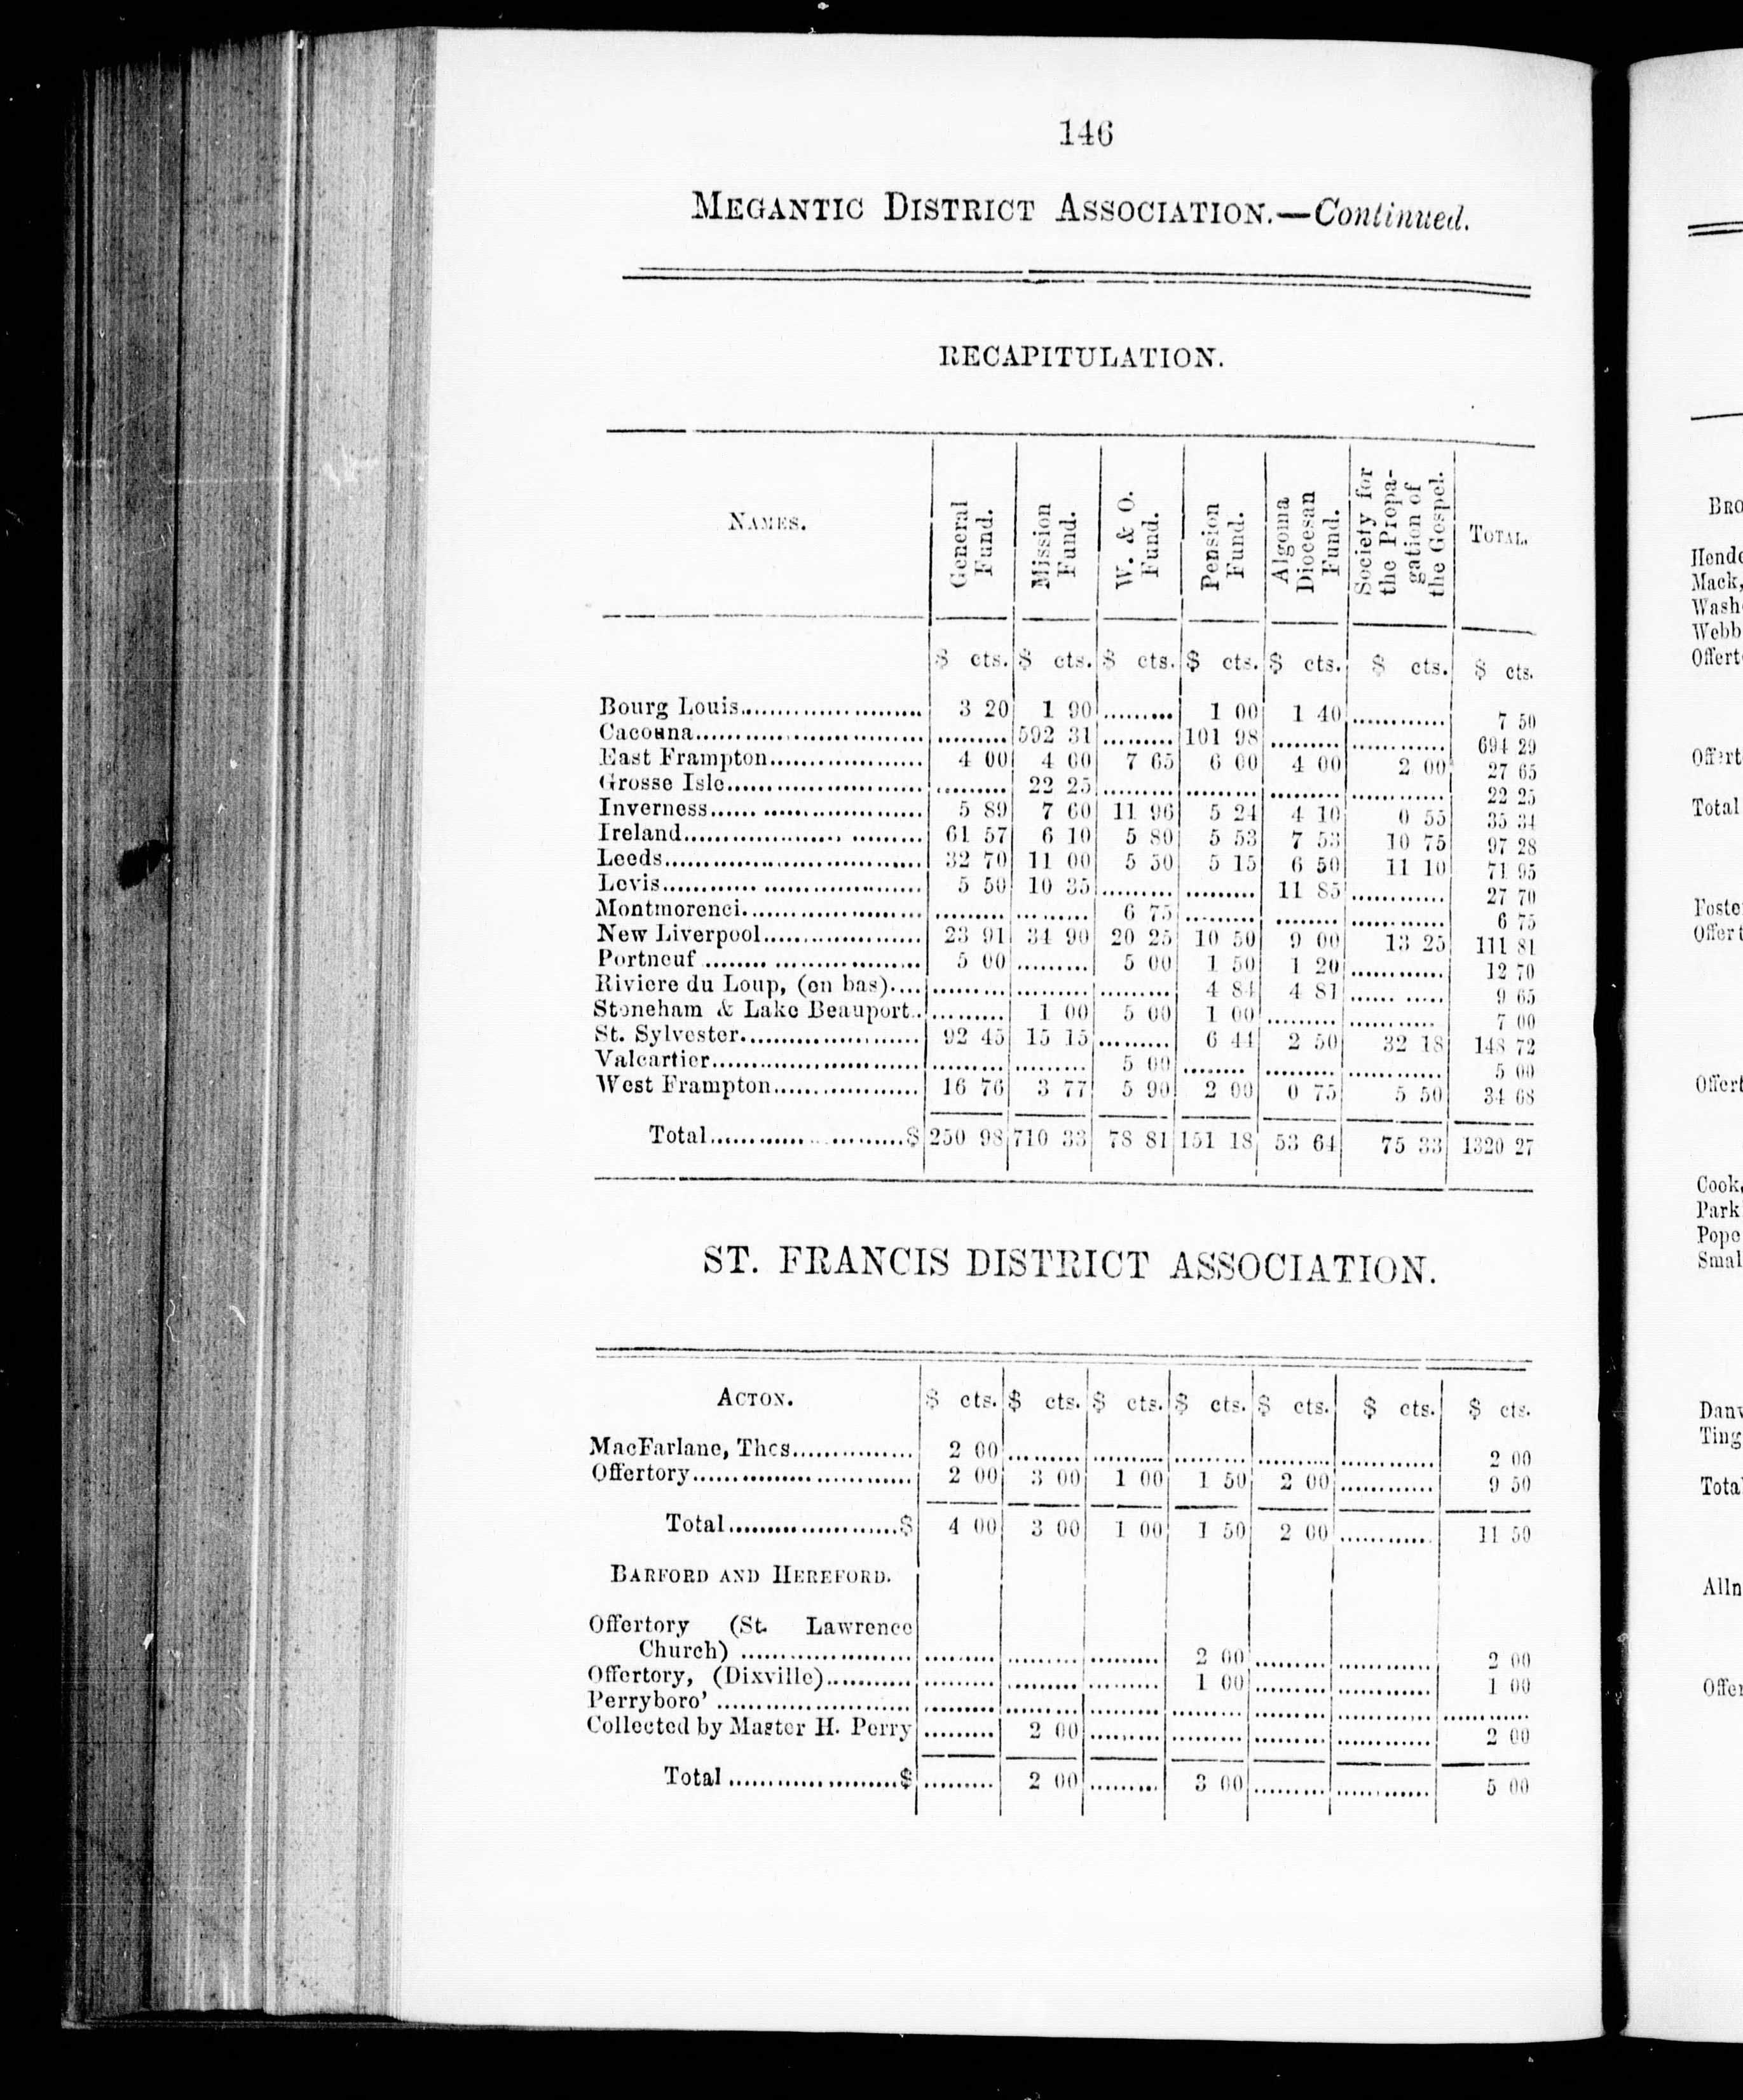 146
MEGANTIC DISTRICT ASSOCIATION.—Continued.
RECAPITULATION.
NAMES. General Fund. Mission Fund. W. & O. Fund. Pension Fund. Algoma Diocesan Fund. Society for the Propagation of the Gospel. TOTAL.
$ cts. $ cts. $ cts. $ cts. $ cts. $ cts. $ cts.
Bourg Louis........................ 3 20 1 90 ......... 1 00 1 40 ............ 7 50
Cacouna.............................. ......... 592 31 ......... 101 98 ......... ............ 694 29
East Frampton.................... 4 00 4 00 7 65 6 00 4 00 2 00 27 65
Grosse Isle.......................... ......... 22 25 ......... ......... ......... ............ 22 25
Inverness...... ..................... 5 89 7 60 11 96 5 24 4 10 0 55 35 34
Ireland..................... ......... 61 57 6 10 5 80 5 53 7 53 10 75 97 28
Leeds.................................. 32 70 11 00 5 50 5 15 6 50 11 10 71 95
Levis............ ..................... 5 50 10 35 ......... ......... 11 85 ............ 27 70
Montmorenci........................ ......... ......... 6 75 ......... ........ ............ 6 75
New Liverpool..................... 23 91 34 90 20 25 10 50 9 00 13 25 111 81
Portneuf ........ ................... 5 00 ......... 5 00 1 50 1 20 ............ 12 70
Riviere du Loup, (en bas).... ......... ......... ......... 4 84 4 81 ...... ..... 9 65
Stoneham & Lake Beauport.. ......... 1 00 5 00 1 00 ......... ........... 7 00
St. Sylvester....................... 92 45 15 15 ......... 6 44 2 50 32 18 148 72
Valcartier........................... ......... ......... 5 00 ........ ......... ............ 5 00
West Frampton................... 16 76 3 77 5 90 2 00 0 75 5 50 34 68
Total.........................$ 250 98 710 33 78 81 151 18 53 64 75 33 1320 27
ST. FRANCIS DISTRICT ASSOCIATION.
ACTON. $ cts. $ cts. $ cts. $ cts. $ cts. $ cts. $ cts.
MacFarlane, Thos................ 2 00 ......... ......... ......... ......... ............ 2 00
Offertory............................ 2 00 3 00 1 00 1 50 2 00 ............ 9 50
Total......................$ 4 00 3 00 1 00 1 50 2 00 ............ 11 50
BARFORD AND HEREFORD.
Offertory (St. Lawrence
Church) ...................... ......... ......... ......... 2 00 ......... ............ 2 00
Offertory, (Dixville)........... ......... ......... ......... 1 00 ......... ............ 1 00
Perryboro' ......................... ......... ......... ......... ......... ......... ............ ...........
Collected by Master H. Perry ......... 2 00 ......... ......... ......... ............ 2 00
Total ......................$ ......... 2 00 ......... 3 00 ......... ............ 5 00
BRO
Hende
Mack,
Wash
Webb
Offert
Offert
Total
Foste
Offert
Offert
Cook,
Park
Pope
Smal
Danv
Ting
Tota
Alln
Offer